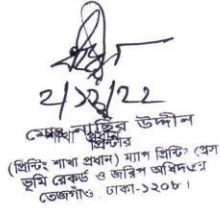 ২/১২/২২
নাছির উদ্দীন
প্রিন্টার
(প্রিন্টিং শাখা প্রধান) ম্যাপ প্রিন্টিং প্রেস
ভূমি রেকর্ড ও জরিপ অধিদপ্তর
তেজগাঁও, ঢাকা-১২০৮।